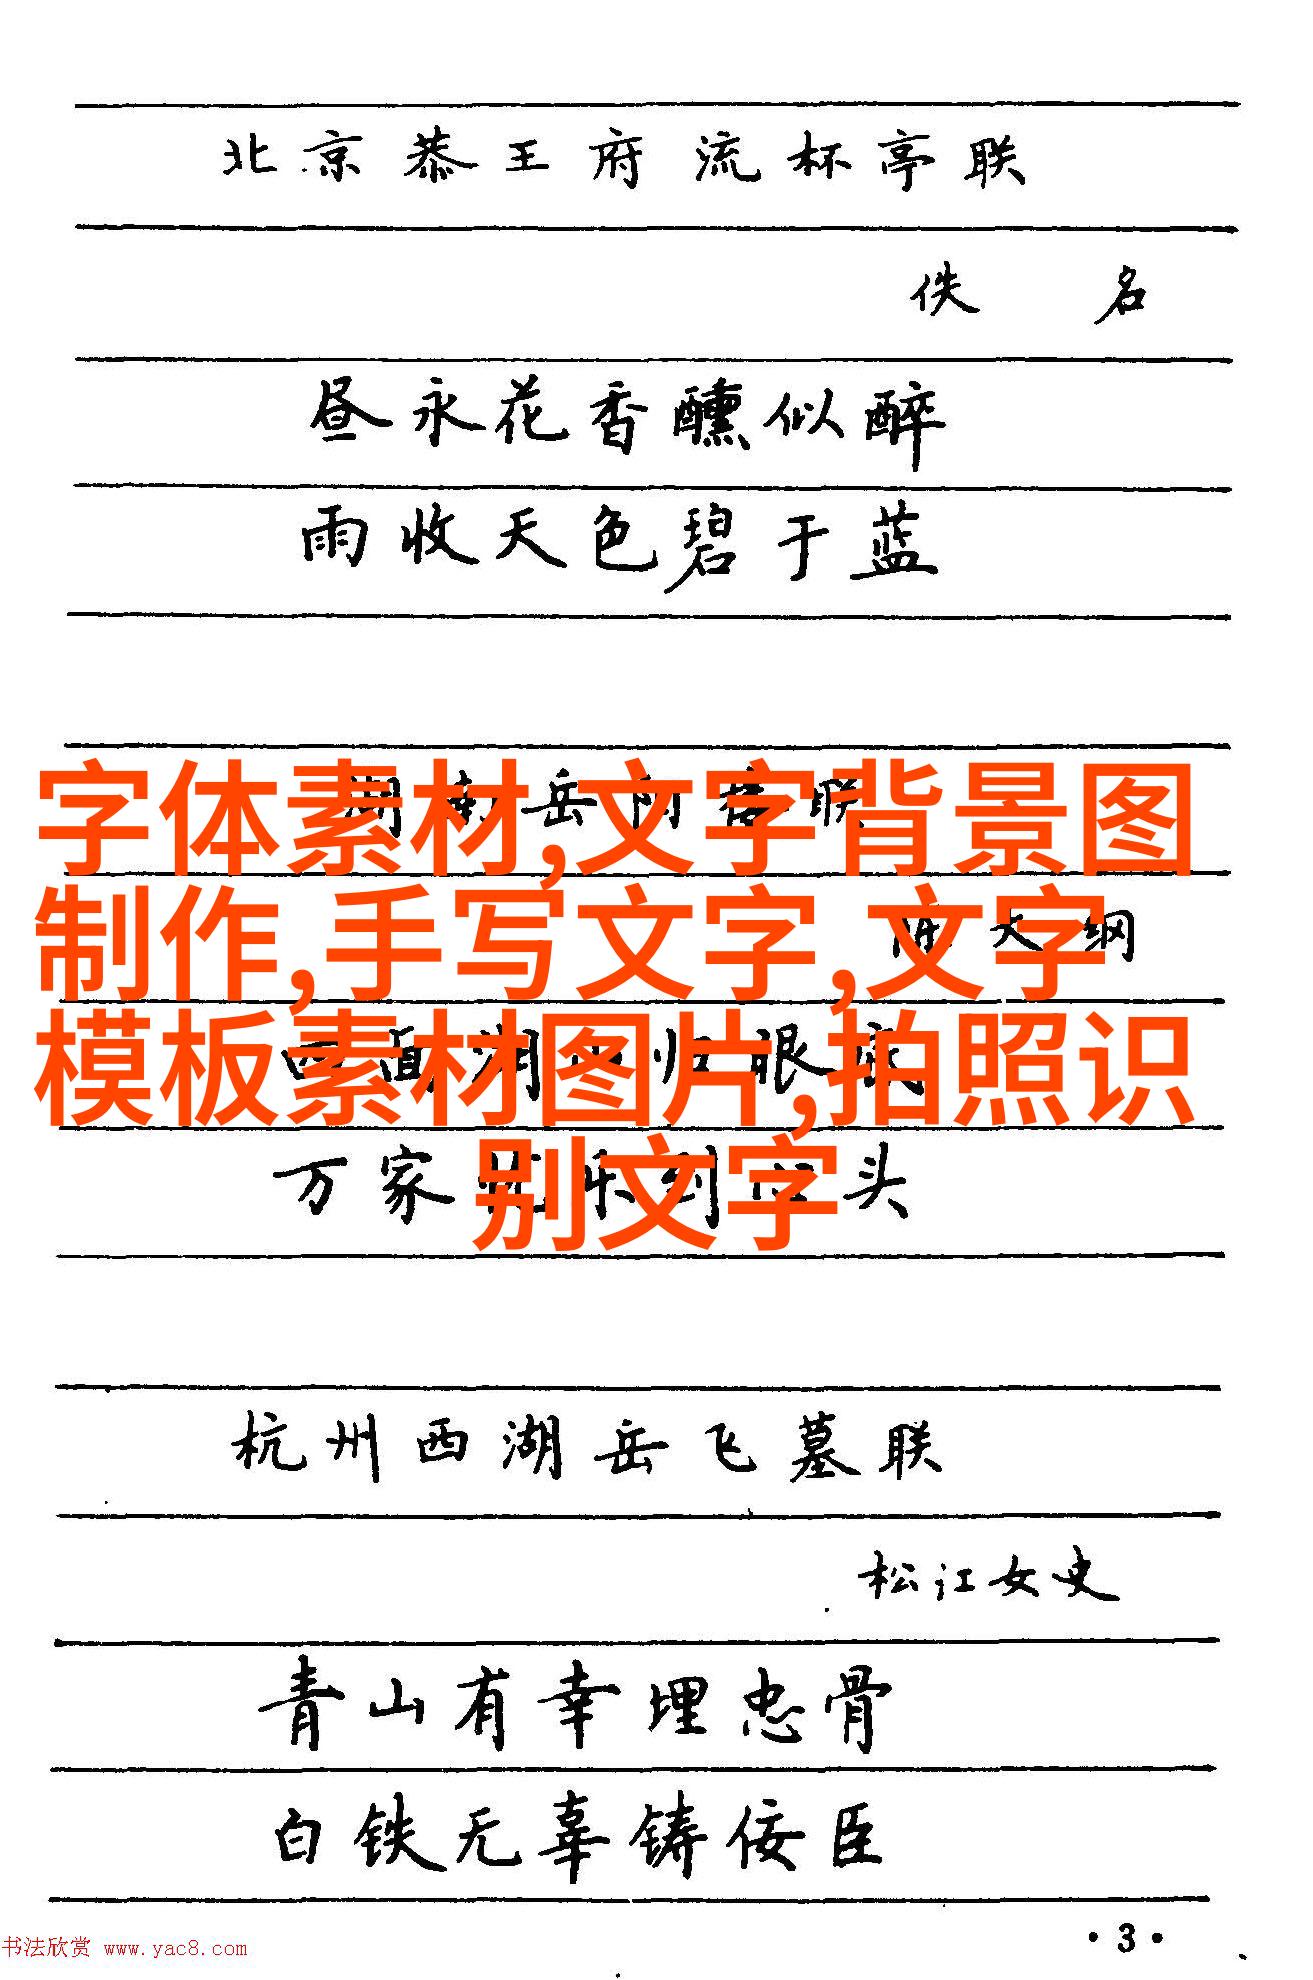 北京恭王府流杯亭联
佚名
昼永花香醺似醉
雨收天色碧于蓝
岳 联
字体素材,文字背景图
大纲
制作,手写文字,文字
眼
模板素材图片,拍照识
万家 到 头
别文字
杭州西湖岳飞墓联
松江女史
青山有幸埋忠骨
白铁无辜铸佞臣
·3·
书法欣赏 www.yac8.com